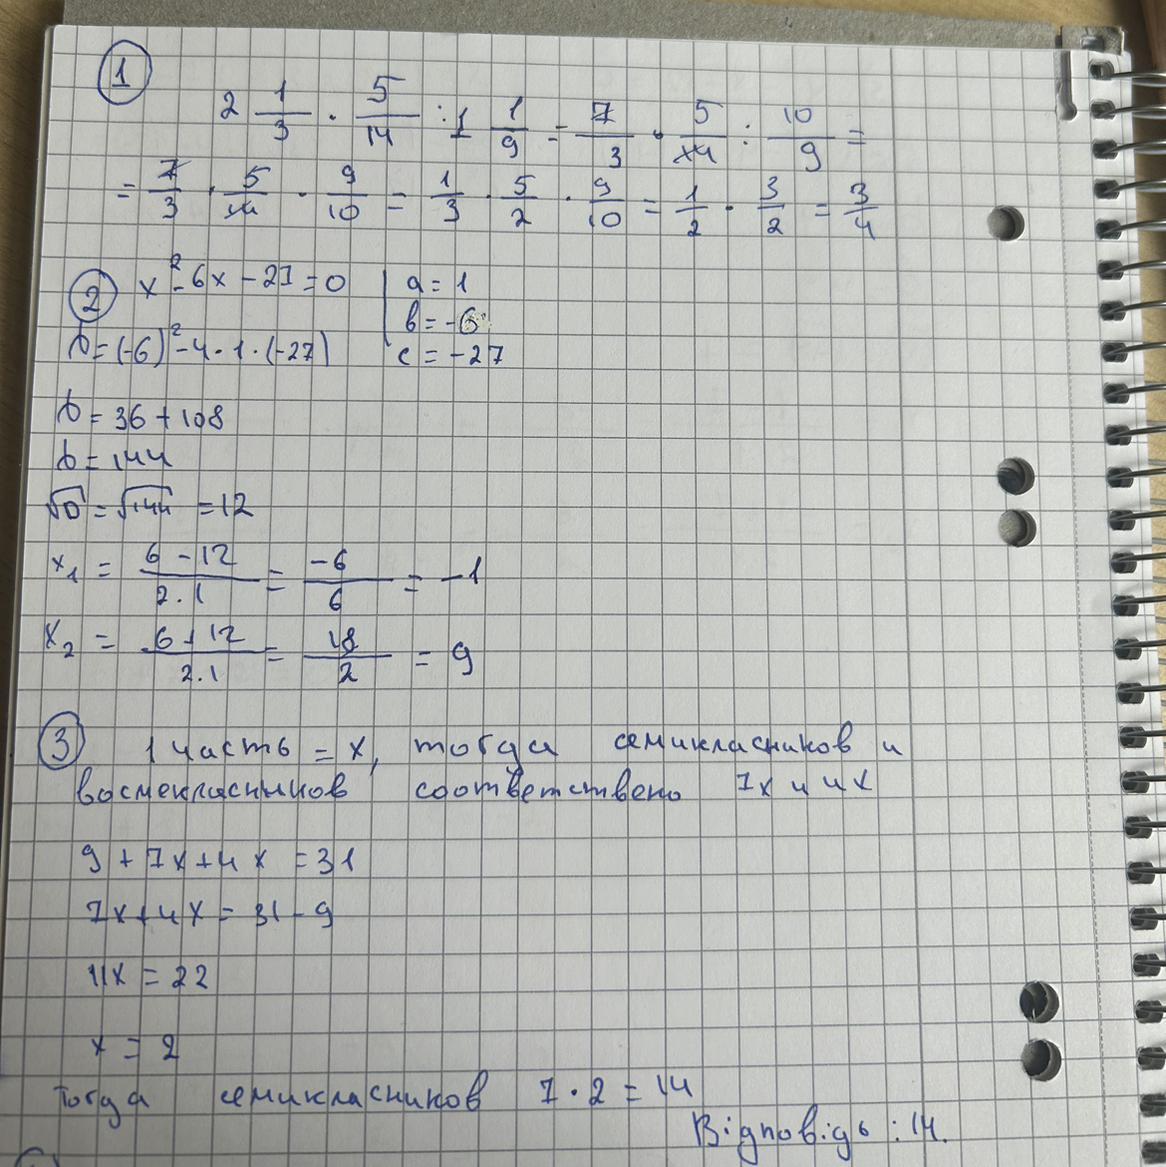 1
2 1/3 · 5/14 : 1 1/9 = 7/3 · 5/14 : 10/9 =
= 7/3 · 5/14 · 9/10 = 1/3 · 5/2 · 9/10 = 1/2 · 3/2 = 3/4
2 x² - 6x - 27 = 0 a = 1
b = -6
D = (-6)² - 4 · 1 · (-27) c = -27
D = 36 + 108
D = 144
√D = √144 = 12
x₁ = (6 - 12)/(2 · 1) = -6/6 = -1
x₂ = (6 + 12)/(2 · 1) = 18/2 = 9
3 1 часть = x, тогда семикласников и
восмекласников соответствено 7x и 4x
9 + 7x + 4x = 31
7x + 4x = 31 - 9
11x = 22
x = 2
Тогда семикласников 7 · 2 = 14
Відповідь : 14.